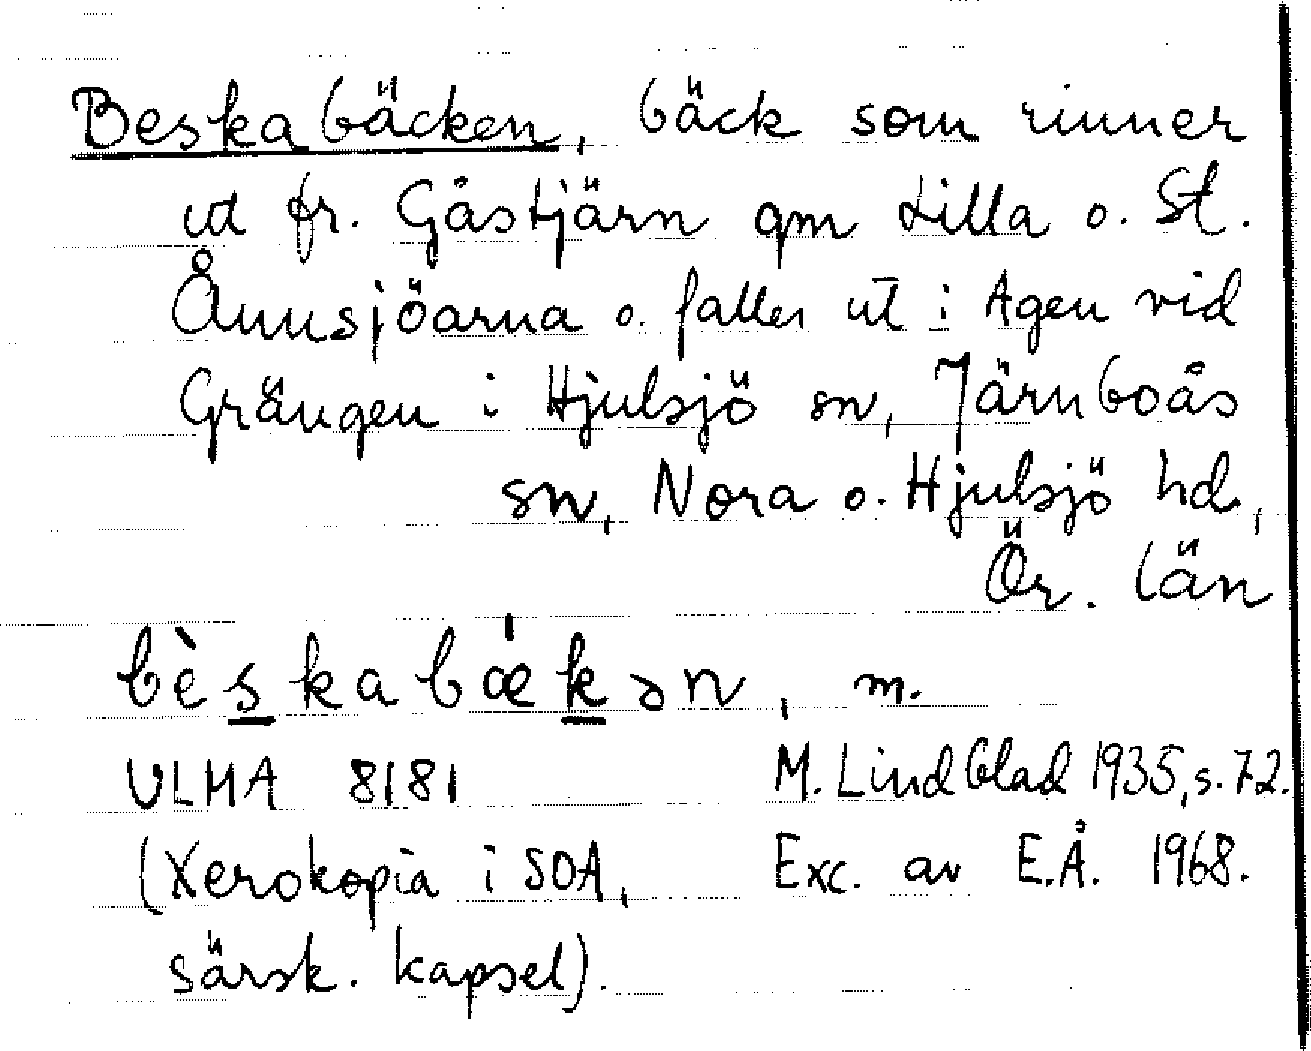 Beskabäcken, bäck som rinner
ut fr. Gåstjärn gm Lilla o. St.
Ånnsjöarna o. faller ut i Agen vid
Grängen i Hjulsjö sn, Järnboås
sn, Nora o. Hjulsjö hd,
Ör. län
bèskabǽkən, m.
ULMA 8181 M. Lindblad 1935, s. 72.
(Xerokopia i SOA, Exc. av E.Å. 1968.
särsk. kapsel).